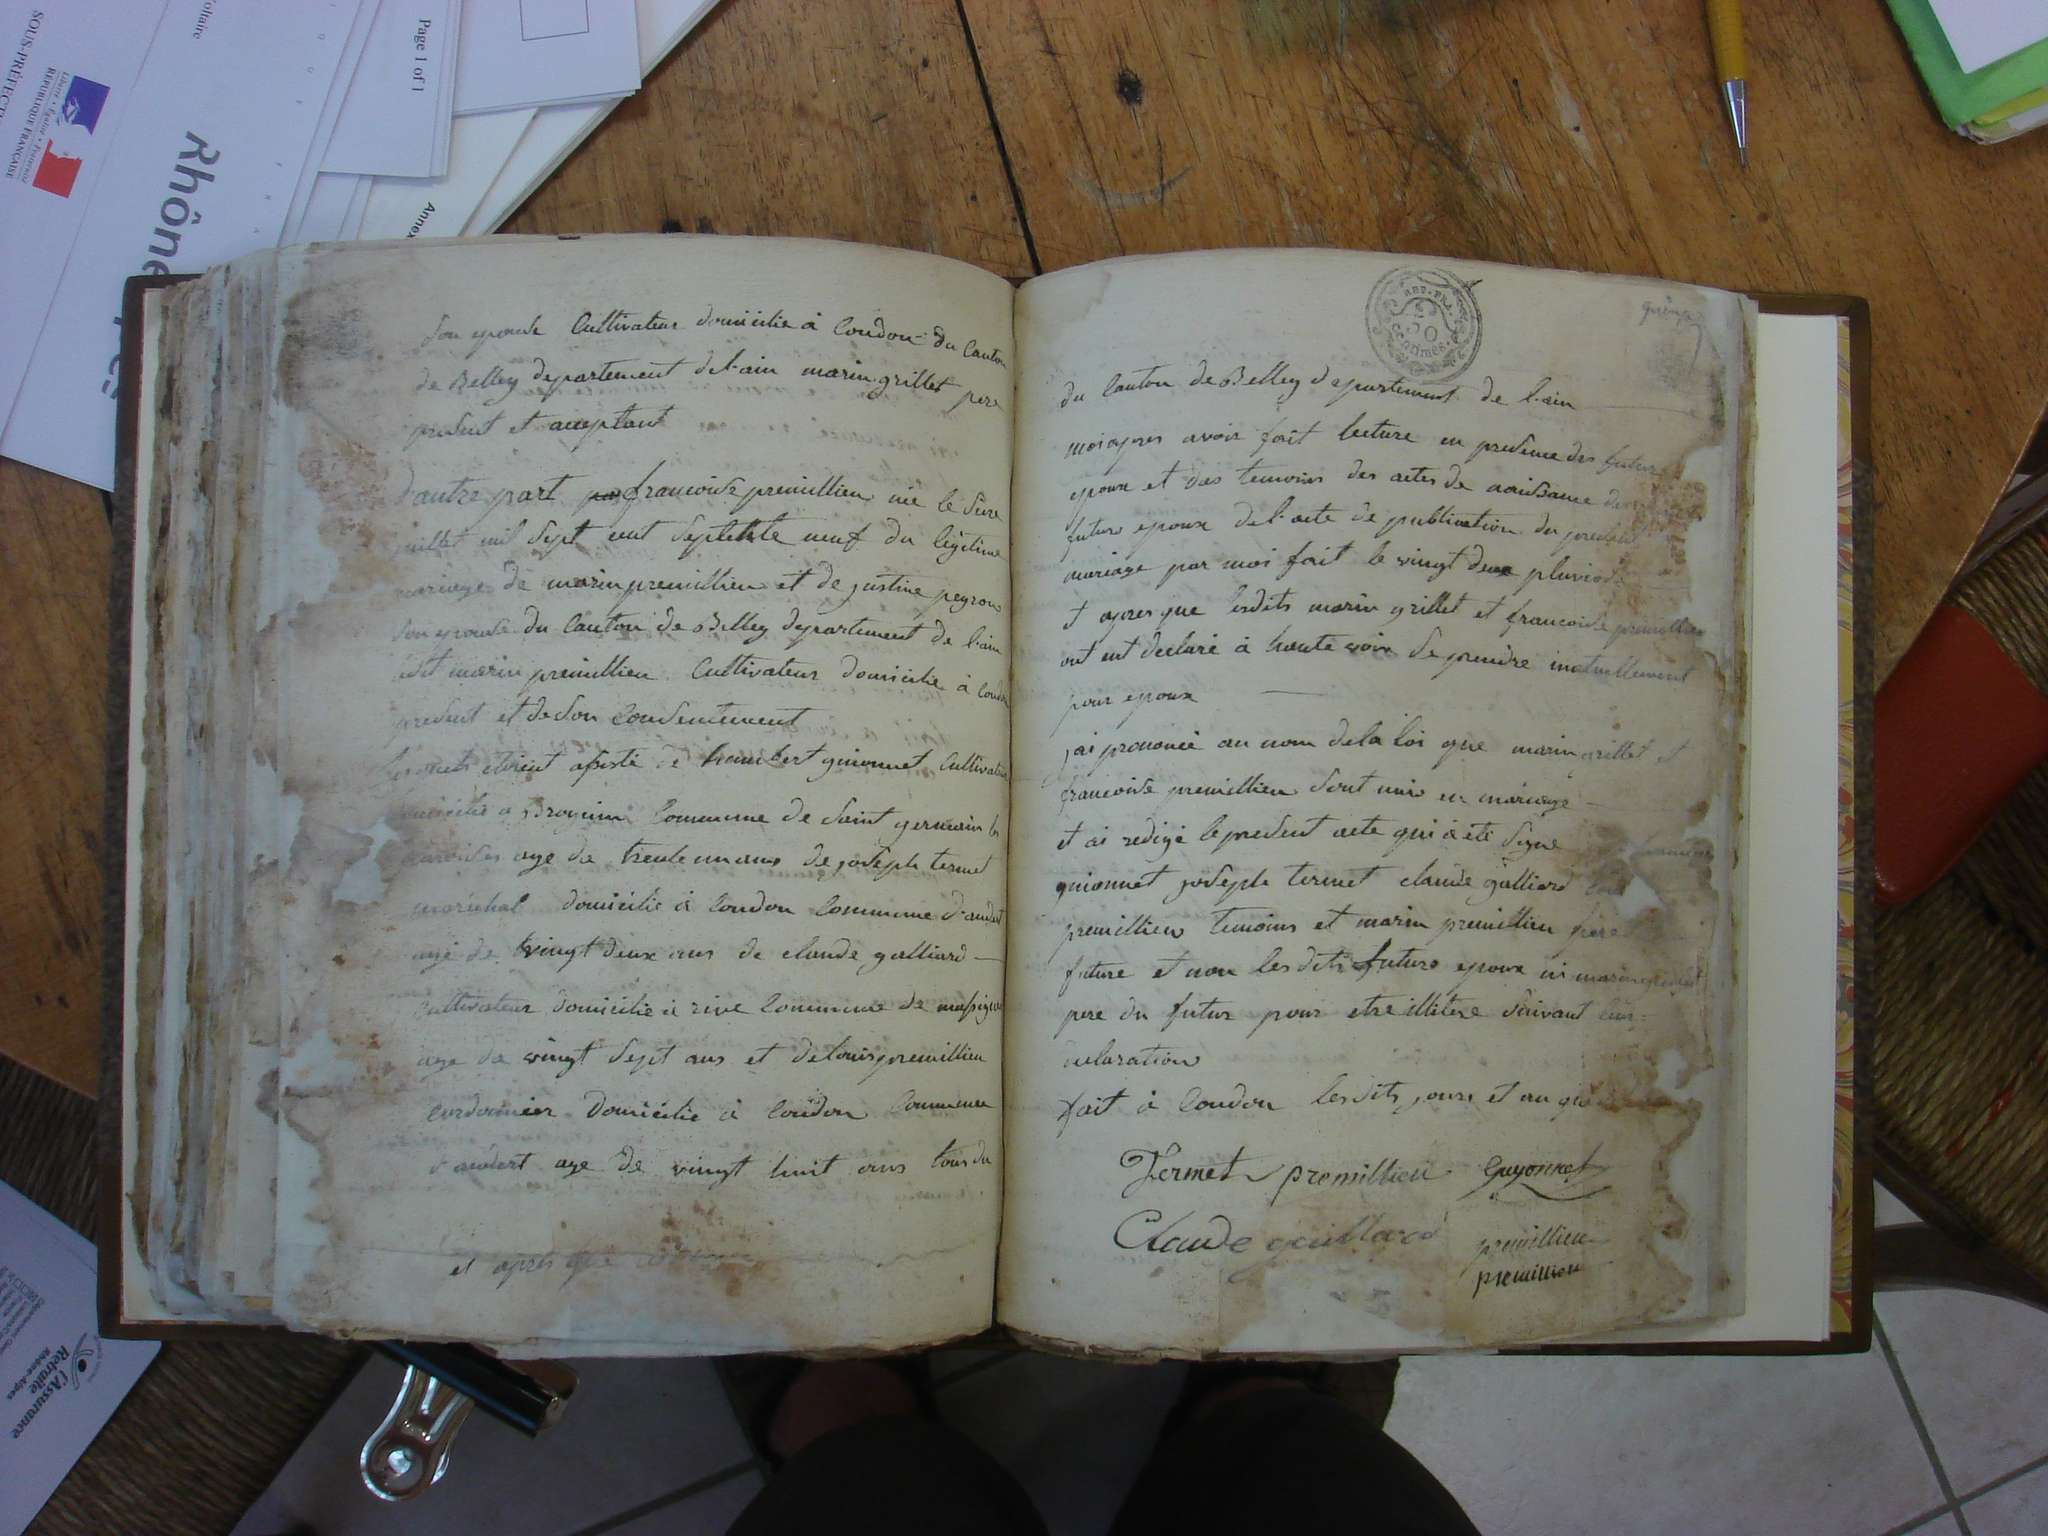 SOUS-PRÉFECT
Liberté • Égalité • Fraternité
RÉPUBLIQUE FRANÇAISE
Rhône
oltaire
Page 1 of 1
Annex
l'Assurance
Retraite
Rhône-Alpes
son epouse Cultivateur domicilie à Coudon du Canton
de Belley departement de l'ain marin grillet pere
present et acceptant
d'autre part francoise premillieu née le seize
juillet mil sept cent septente neuf du legitime
mariage de marin premillieu et de justine peyron
son epouse du Canton de Belley departement de l'ain
marin premillieu Cultivateur domicilie à Coudon
present et de son consentement
etoient assisté de humbert guionnet Cultivateur
domicilie a Brognin Commune de Saint germain les
paroisses age de trente un ans de joseph termet
marechal domicilie à Coudon Commune d'andert
agé de vingt deux ans de claude galliard
cultivateur domicilie à rive Commune de massigneu
age de vingt sept ans et de louis premillieu
cordonnier domicilie à Coudon Commune
d'andert age de vingt huit ans tous du
et apres que
REP. FRA.
50
centimes
du Canton de Belley departement de l'ain
moi apres avoir fait lecture en presence des futurs
epoux et des temoins des actes de naissance des
futurs epoux de l'acte de publication du present
mariage par moi fait le vingt deux pluviose
et apres que lesdits marin grillet et francoise premillieu
ont eut declaré à haute voix se prendre mutuellement
pour epoux
j'ai prononcé au nom de la loi que marin grillet et
francoise premillieu sont unis en mariage
et ai redigé le present acte qui a été signe
guionnet joseph termet claude galliard
premillieu temoins et marin premillieu pere
future et non les dits futurs epoux ni marin grillet
pere du futur pour etre illitere suivant leur
declaration
fait à Coudon lesdits jours et an que
Termet premillieu Guyonnet
Claude gaillard premillieu
premillieu